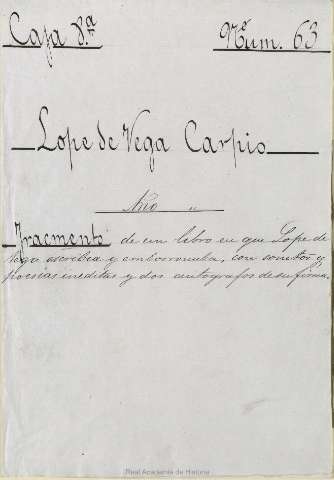 Caja 8.ª Núm. 63
Lope de Vega Carpio
Año "
Fragmento de un libro en que Lope de
Vega escribia y emborronaba, con sonetos y
poesias ineditas y dos autografos de su firma.
Real Academia de Historia